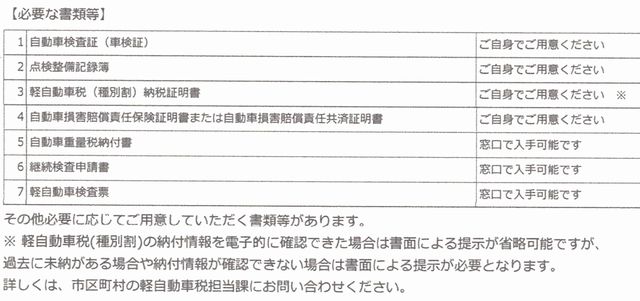 【必要な書類等】
1 自動車検査証（車検証） ご自身でご用意ください
2 点検整備記録簿 ご自身でご用意ください
3 軽自動車税（種別割）納税証明書 ご自身でご用意ください ※
4 自動車損害賠償責任保険証明書または自動車損害賠償責任共済証明書 ご自身でご用意ください
5 自動車重量税納付書 窓口で入手可能です
6 継続検査申請書 窓口で入手可能です
7 軽自動車検査票 窓口で入手可能です
その他必要に応じてご用意していただく書類等があります。
※ 軽自動車税(種別割)の納付情報を電子的に確認できた場合は書面による提示が省略可能ですが、
過去に未納がある場合や納付情報が確認できない場合は書面による提示が必要となります。
詳しくは、市区町村の軽自動車税担当課にお問い合わせください。